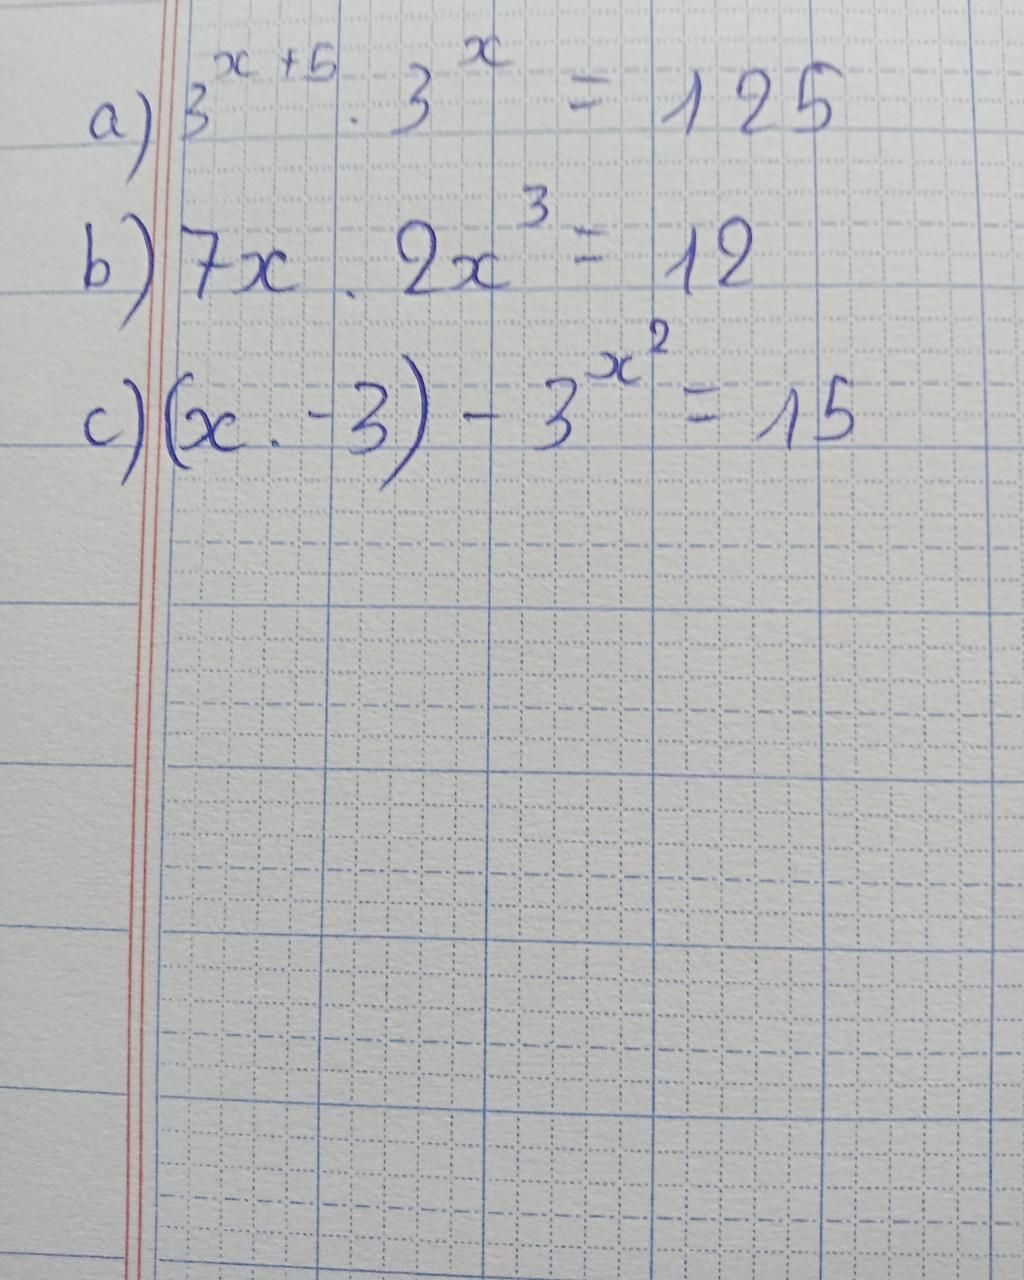 a) 3^{x+5} . 3^{x} = 125
b) 7x . 2x^{3} = 12
c) (x . -3) - 3^{x^{2}} = 15